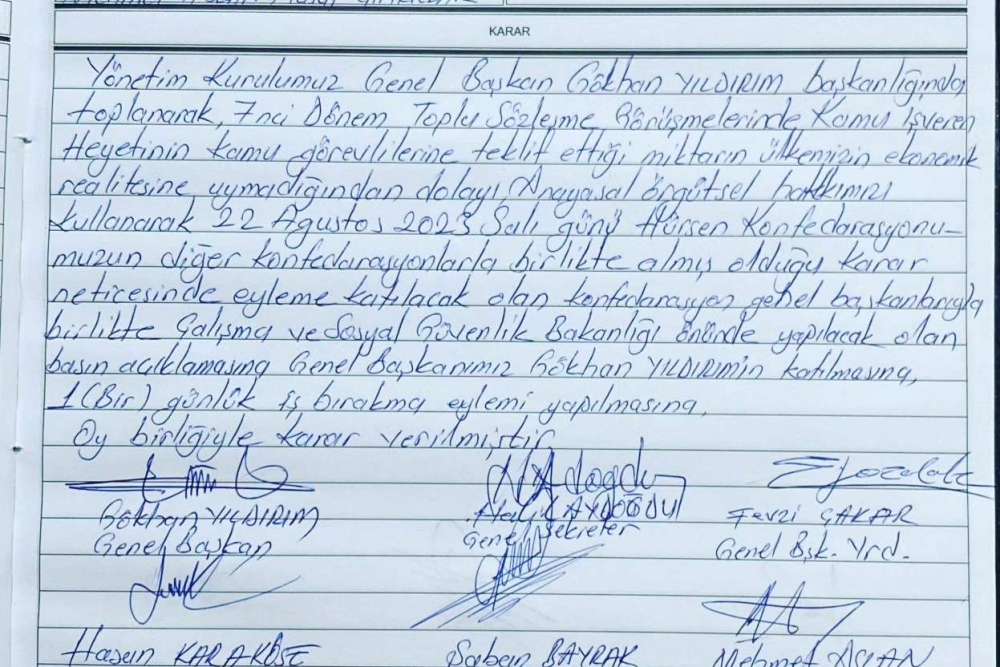 KARAR
Yönetim Kurulumuz Genel Başkan Gökhan YILDIRIM başkanlığında
toplanarak, 7nci Dönem Toplu Sözleşme Görüşmelerinde Kamu İşveren
Heyetinin kamu görevlilerine teklif ettiği miktarın ülkemizin ekonomik
realitesine uymadığından dolayı, Anayasal örgütsel hakkımızı
kullanarak 22 Ağustos 2023 Salı günü Hürsen Konfedarasyonu-
muzun diğer konfedarasyonlarla birlikte almış olduğu karar
neticesinde eyleme katılacak olan konfedarasyon genel başkanlarıyla
birlikte Çalışma ve Sosyal Güvenlik Bakanlığı önünde yapılacak olan
basın açıklamasına Genel Başkanımız Gökhan YILDIRIMın katılmasına,
1 (Bir) günlük iş bırakma eylemi yapılmasına,
Oy birliğiyle karar verilmiştir.
Gökhan YILDIRIM AYDOĞDU Fevzi ÇAKAR
Genel Başkan Genel Sekreter Genel Bşk. Yrd.
Hasan KARAKÖSE Şaben BAYRAK Mehmet ASLAN